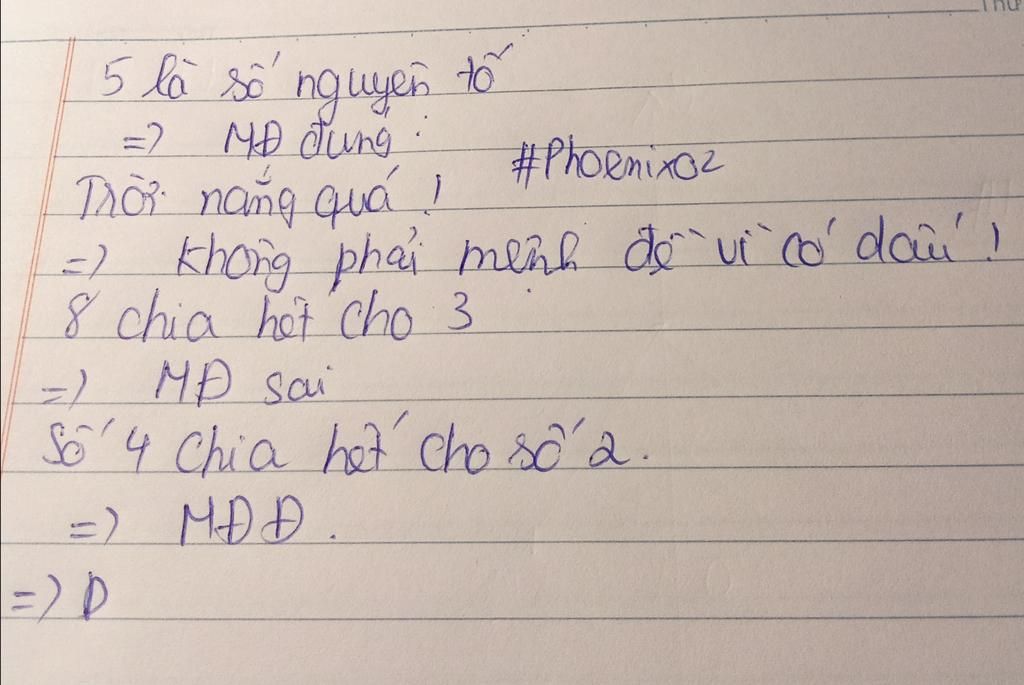 5 là số nguyên tố
=> MĐ đúng.
#Phoenix02
Trời nắng quá!
=> không phải mệnh đề vì có dấu!
8 chia hết cho 3
=> MĐ sai
Số 4 chia hết cho số 2.
=> MĐĐ.
=> D